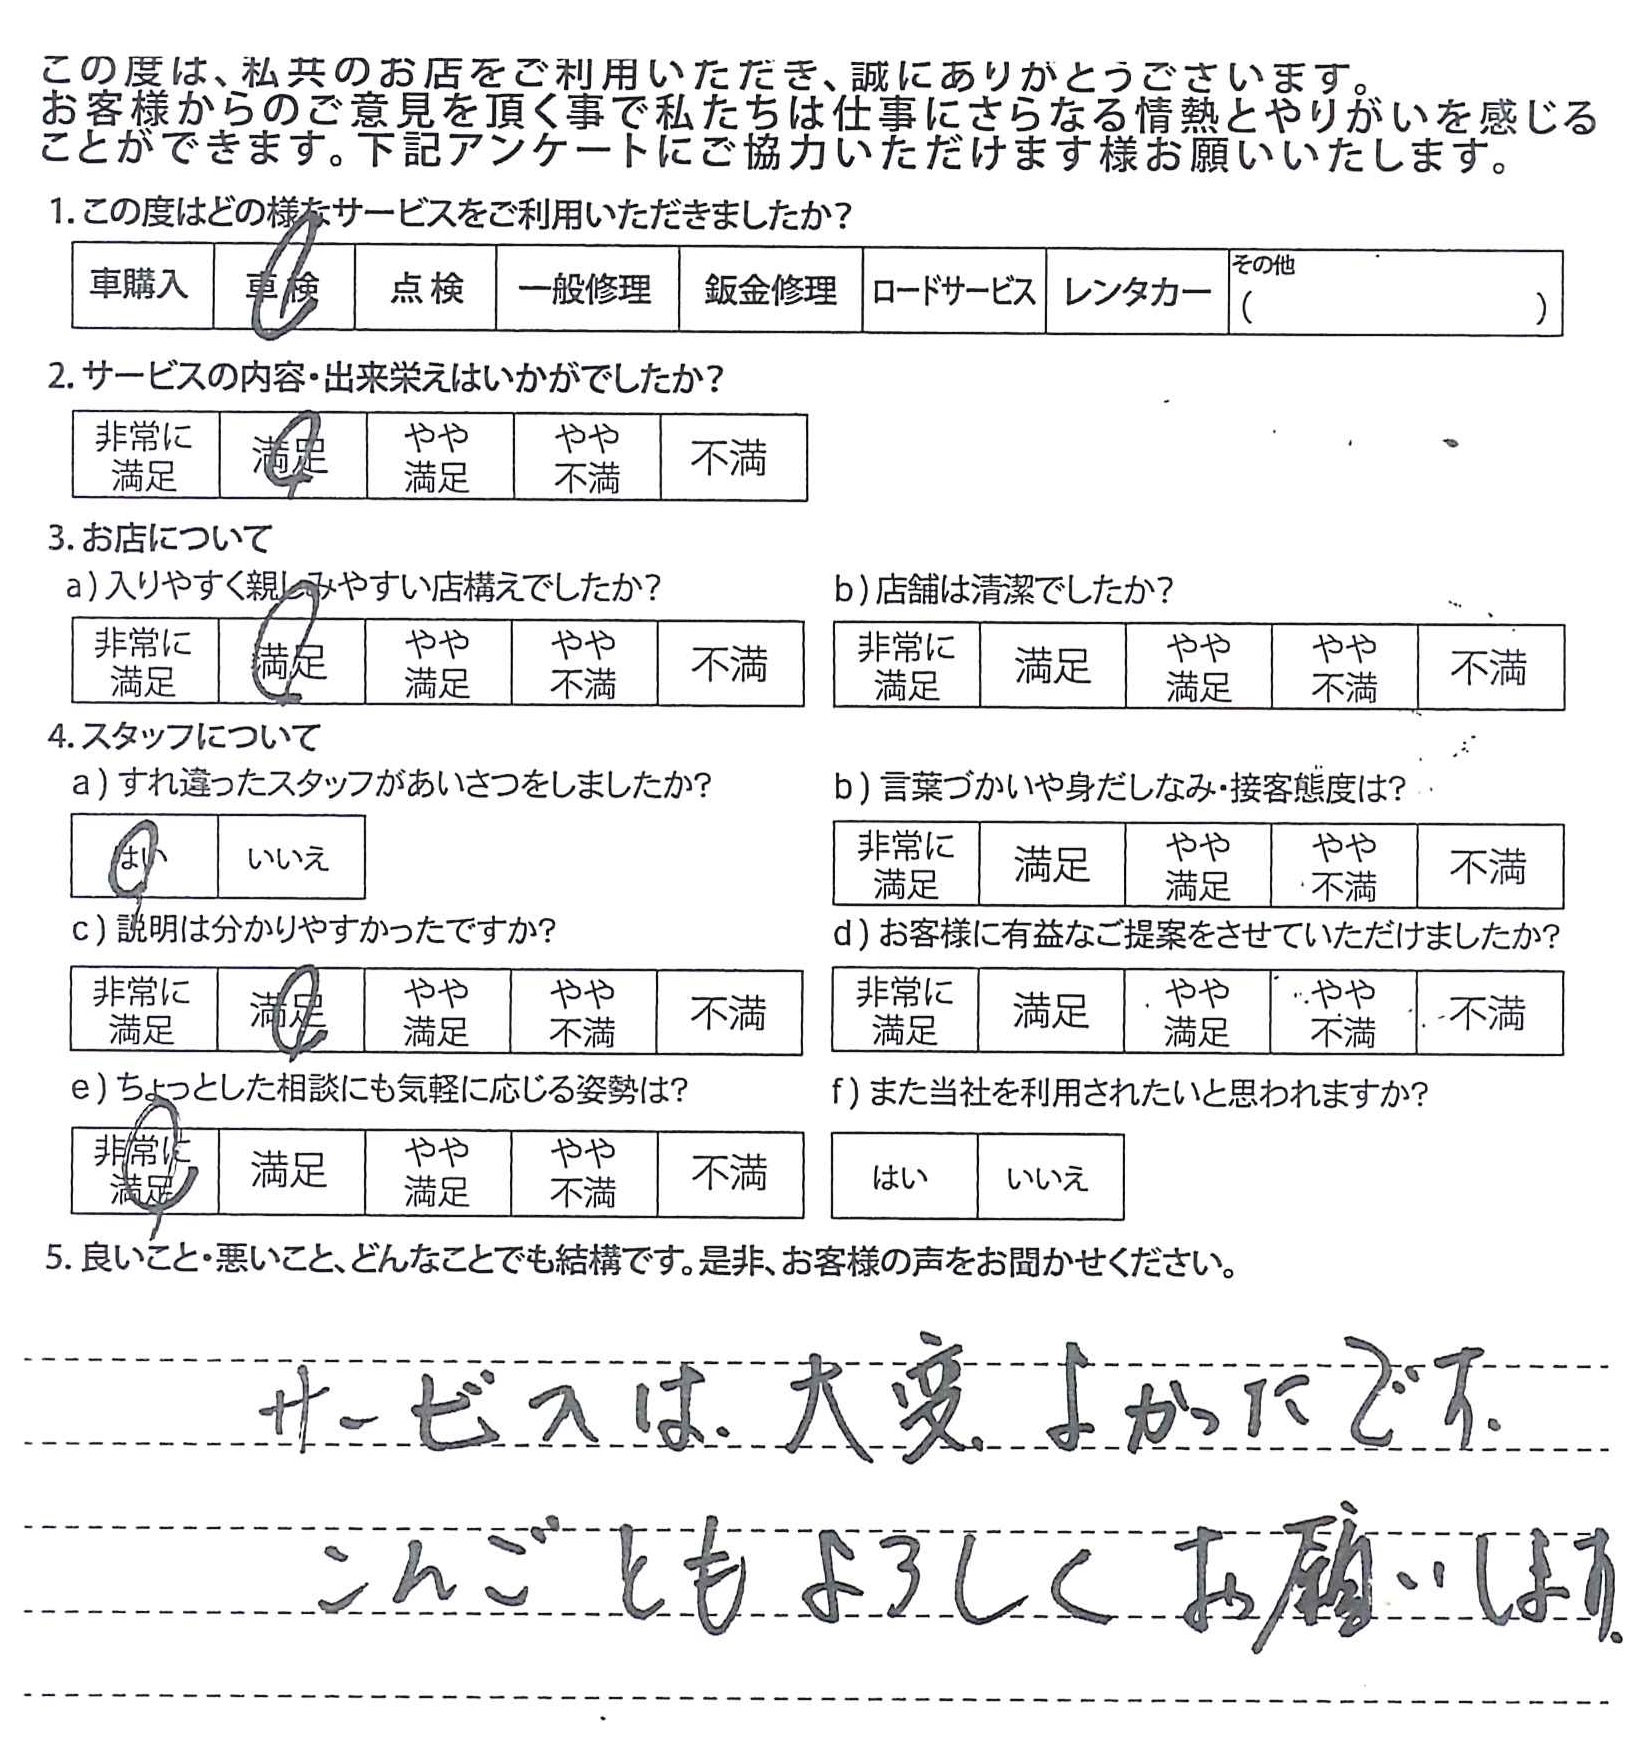 この度は、私共のお店をご利用いただき、誠にありがとうございます。
お客様からのご意見を頂く事で私たちは仕事にさらなる情熱とやりがいを感じる
ことができます。下記アンケートにご協力いただけます様お願いいたします。
1. この度はどの様なサービスをご利用いただきましたか?
車購入 車検 点検 一般修理 鈑金修理 ロードサービス レンタカー その他
( )
2. サービスの内容・出来栄えはいかがでしたか?
非常に満足 満足 やや満足 やや不満 不満
3. お店について
a) 入りやすく親しみやすい店構えでしたか? b) 店舗は清潔でしたか?
非常に満足 満足 やや満足 やや不満 不満 非常に満足 満足 やや満足 やや不満 不満
4. スタッフについて
a) すれ違ったスタッフがあいさつをしましたか? b) 言葉づかいや身だしなみ・接客態度は?
はい いいえ 非常に満足 満足 やや満足 やや不満 不満
c) 説明は分かりやすかったですか? d) お客様に有益なご提案をさせていただけましたか?
非常に満足 満足 やや満足 やや不満 不満 非常に満足 満足 やや満足 やや不満 不満
e) ちょっとした相談にも気軽に応じる姿勢は? f) また当社を利用されたいと思われますか?
非常に満足 満足 やや満足 やや不満 不満 はい いいえ
5. 良いこと・悪いこと、どんなことでも結構です。是非、お客様の声をお聞かせください。
サービスは、大変、よかったです.
こんごともよろしくお願いします.